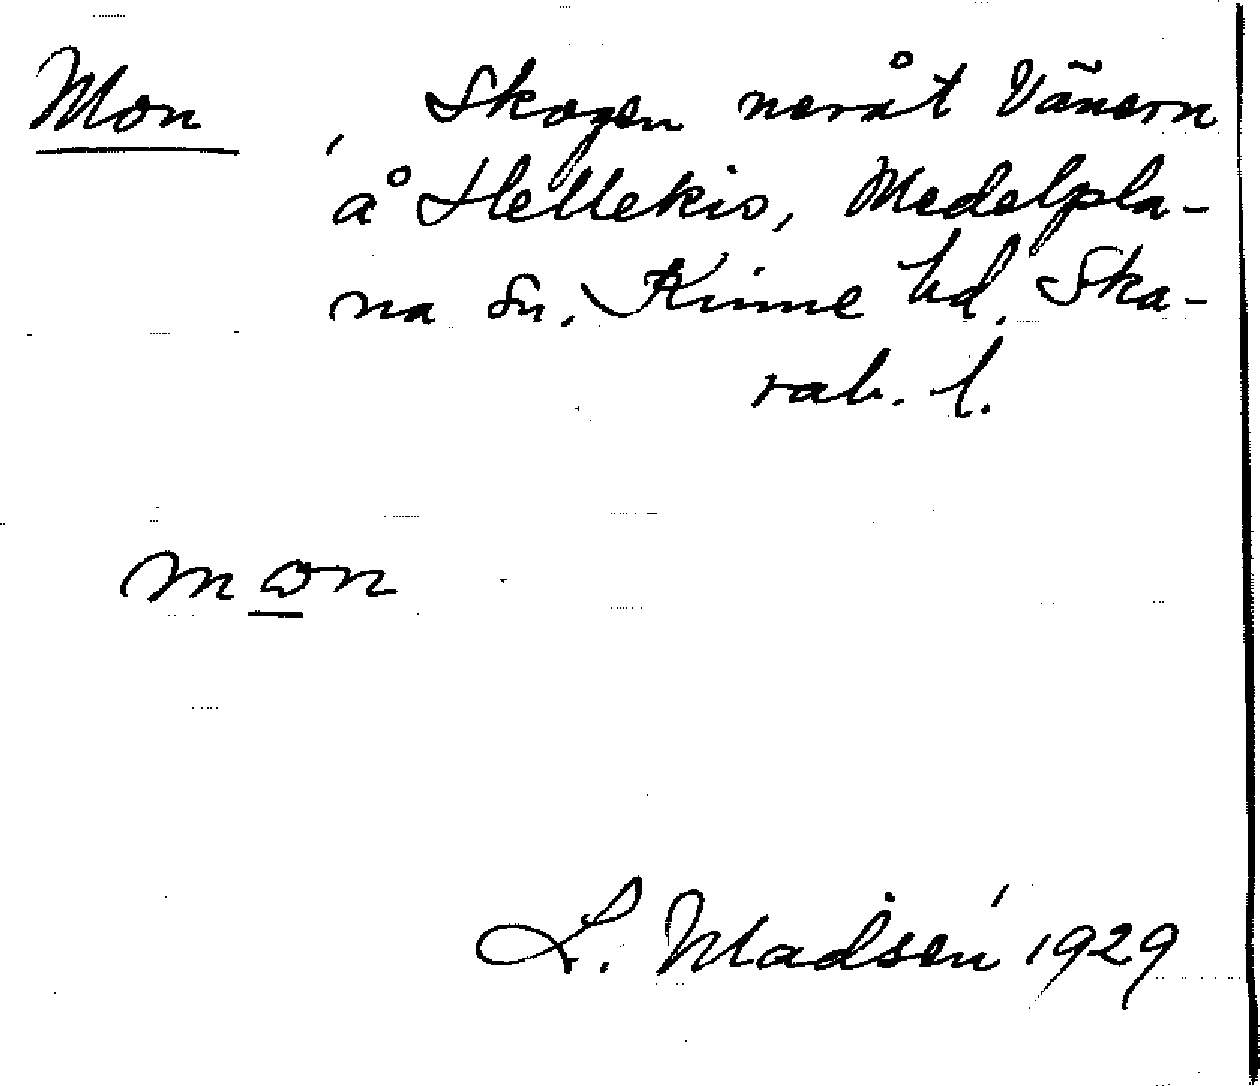 Mon, Skogen neråt Vänern
å Hellekis, Medelpla-
na sn, Kinne hd, Ska-
rab. l.
mon
L. Madsén 1929